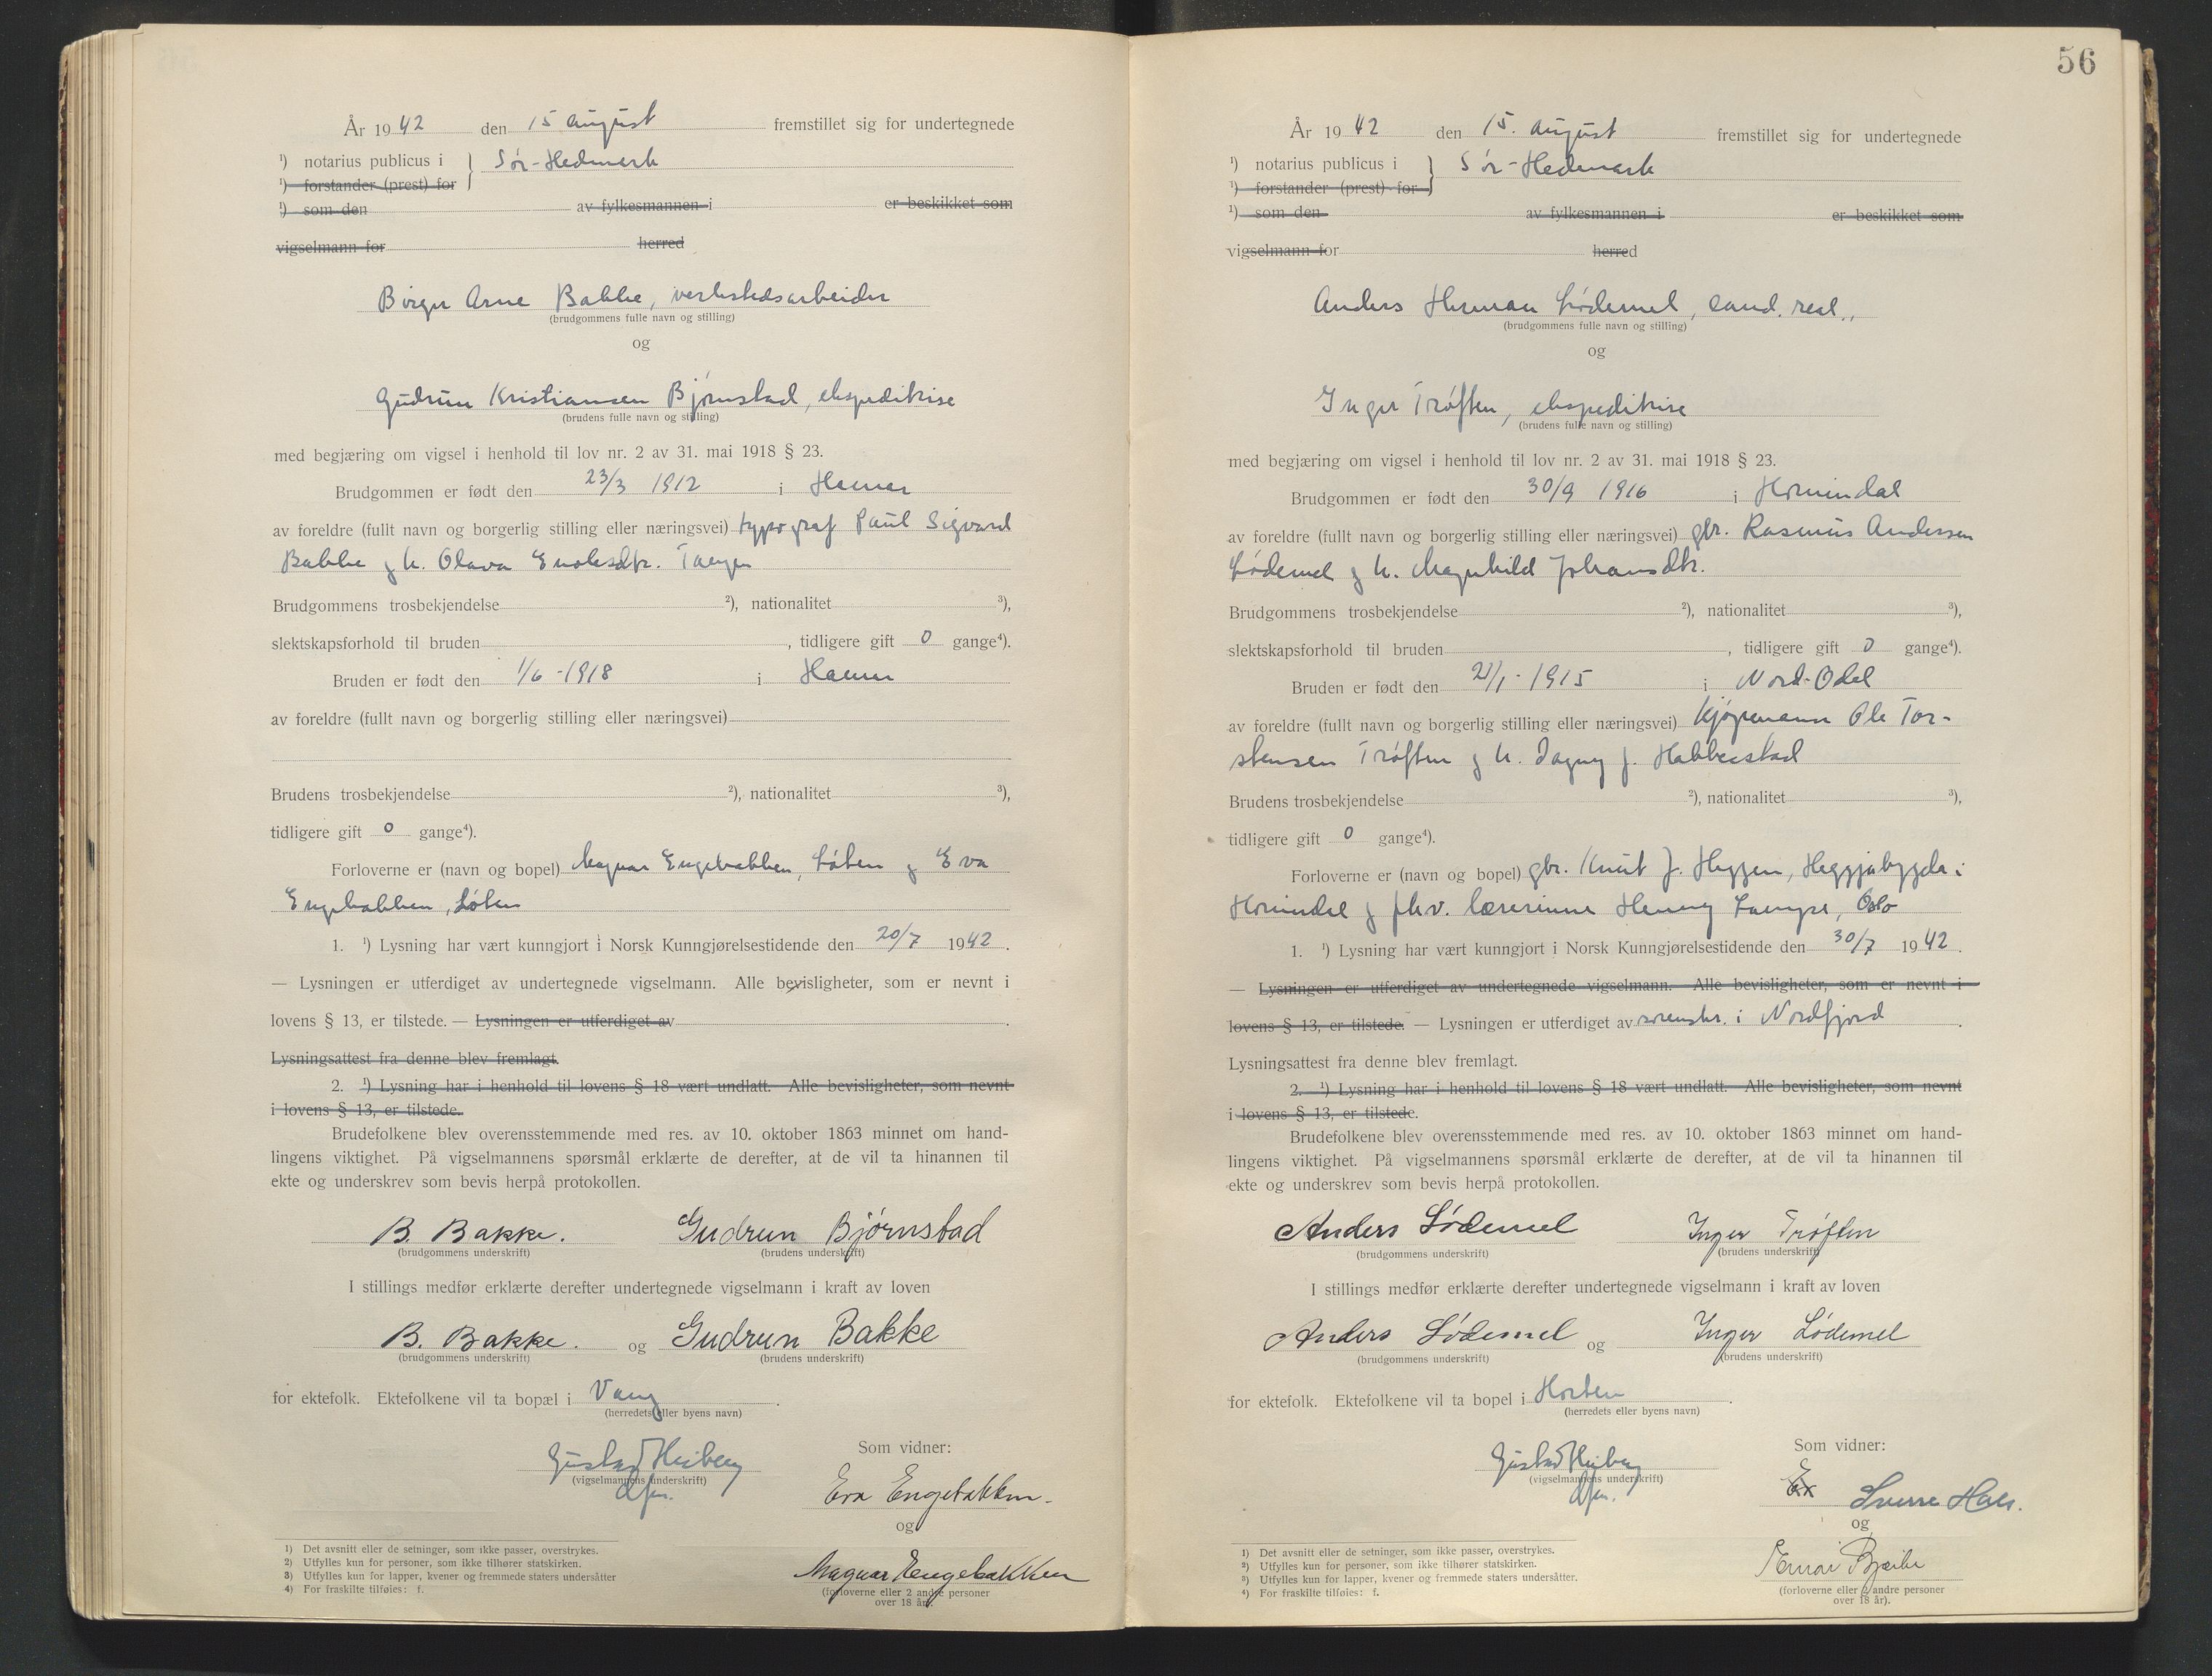 År 1942 den 15 august fremstillet sig for undertegnede
¹) notarius publicus i } Sør-Hedmark
¹) forstander (prest) for
¹) som den av fylkesmannen i er beskikket som
vigselmann for herred
Birger Arne Bakke, verkstedsarbeider
(brudgommens fulle navn og stilling)
og
Gudrun Kristiansen Bjørnstad, ekspeditrise
(brudens fulle navn og stilling)
med begjæring om vigsel i henhold til lov nr. 2 av 31. mai 1918 § 23.
Brudgommen er født den 23/3 1912 i Hamar
av foreldre (fullt navn og borgerlig stilling eller næringsvei) typograf Paul Sigvard
Bakke og h. Olava Enoksdtr. Tangen
Brudgommens trosbekjendelse ²), nationalitet ³),
slektskapsforhold til bruden , tidligere gift 0 gange⁴).
Bruden er født den 1/6 - 1918 i Hamar
av foreldre (fullt navn og borgerlig stilling eller næringsvei)
Brudens trosbekjendelse ²), nationalitet ³),
tidligere gift 0 gange⁴).
Forloverne er (navn og bopel) Magnar Engebakken, Løten og Eva
Engebakken, Løten
1. ¹) Lysning har vært kunngjort i Norsk Kunngjørelsestidende den 20/7 1942.
— Lysningen er utferdiget av undertegnede vigselmann. Alle bevisligheter, som er nevnt i
lovens § 13, er tilstede. — Lysningen er utferdiget av .
Lysningsattest fra denne blev fremlagt.
2. ¹) Lysning har i henhold til lovens § 18 vært undlatt. Alle bevisligheter, som nevnt
i lovens § 13, er tilstede.
Brudefolkene blev overensstemmende med res. av 10. oktober 1863 minnet om hand-
lingens viktighet. På vigselmannens spørsmål erklærte de derefter, at de vil ta hinannen til
ekte og underskrev som bevis herpå protokollen.
B. Bakke. Gudrun Bjørnstad
(brudgommens underskrift) (brudens underskrift)
I stillings medfør erklærte derefter undertegnede vigselmann i kraft av loven
B. Bakke. og Gudrun Bakke
(brudgommens underskrift) (brudens underskrift)
for ektefolk. Ektefolkene vil ta bopæl i Vang .
(herredets eller byens navn)
Som vidner:
Gustav Heiberg
(vigselmannens underskrift)
dfm.
Eva Engebakken.
og
Magnar Engebakken
(forloverne eller 2 andre personer
over 18 år).
1) Det avsnitt eller de setninger, som ikke passer, overstrykes.
2) Utfylles kun for personer, som ikke tilhører statskirken.
3) Utfylles kun for lapper, kvener og fremmede staters undersåtter
4) For fraskilte tilføies: f.
56
År 1942 den 15. august fremstillet sig for undertegnede
¹) notarius publicus i } Sør-Hedmark
¹) forstander (prest) for
¹) som den av fylkesmannen i er beskikket som
vigselmann for herred
Anders Herman Lødemel, cand. real.,
(brudgommens fulle navn og stilling)
og
Inger Trøften, ekspeditrise
(brudens fulle navn og stilling)
med begjæring om vigsel i henhold til lov nr. 2 av 31. mai 1918 § 23.
Brudgommen er født den 30/9 1916 i Hornindal
av foreldre (fullt navn og borgerlig stilling eller næringsvei) gbr. Rasmus Andersen
Lødemel og h. Magnhild Johansdtr.
Brudgommens trosbekjendelse ²), nationalitet ³),
slektskapsforhold til bruden , tidligere gift 0 gange⁴).
Bruden er født den 21/1 - 1915 i Nord-Odal
av foreldre (fullt navn og borgerlig stilling eller næringsvei) kjøpmann Ole Tor-
stensen Trøften og h. Dagny f. Habberstad
Brudens trosbekjendelse ²), nationalitet ³),
tidligere gift 0 gange⁴).
Forloverne er (navn og bopel) gbr. Knut J. Heggen, Heggjabygda i
Hornindal og fhv. lærerinne Henny Oslo
1. ¹) Lysning har vært kunngjort i Norsk Kunngjørelsestidende den 30/7 1942.
— Lysningen er utferdiget av undertegnede vigselmann. Alle bevisligheter, som er nevnt i
lovens § 13, er tilstede. — Lysningen er utferdiget av sorenskr. i Nordfjord .
Lysningsattest fra denne blev fremlagt.
2. ¹) Lysning har i henhold til lovens § 18 vært undlatt. Alle bevisligheter, som nevnt
i lovens § 13, er tilstede.
Brudefolkene blev overensstemmende med res. av 10. oktober 1863 minnet om hand-
lingens viktighet. På vigselmannens spørsmål erklærte de derefter, at de vil ta hinannen til
ekte og underskrev som bevis herpå protokollen.
Anders Lødemel Inger Trøften
(brudgommens underskrift) (brudens underskrift)
I stillings medfør erklærte derefter undertegnede vigselmann i kraft av loven
Anders Lødemel og Inger Lødemel
(brudgommens underskrift) (brudens underskrift)
for ektefolk. Ektefolkene vil ta bopel i Horten .
(herredets eller byens navn)
Som vidner:
Gustav Heiberg
(vigselmannens underskrift)
dfm.
Sverre Hals.
og
(forloverne eller 2 andre personer
over 18 år).
1) Det avsnitt eller de setninger, som ikke passer, overstrykes.
2) Utfylles kun for personer, som ikke tilhører statskirken.
3) Utfylles kun for lapper, kvener og fremmede staters undersåtter.
4) For fraskilte tilføies: f.